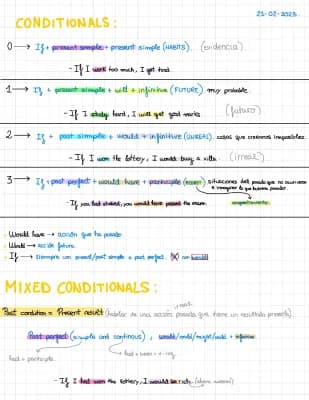 21-02-2023.
CONDITIONALS:
0 → If + present simple + present simple (HABITS). (evidencia)
- If I work too much, I get tired.
1 → If + present simple + will + infinitive (FUTURE) muy probable.
- If I study hard, I will get good marks. (futuro)
2 → If + past simple + would + infinitive (UNREAL). cosas que creemos imposibles.
- If I won the lottery, I would buy a villa. (irreal)
3 → If + past perfect + would have + participle situaciones del pasado que no ocurrieron
e imaginar lo que hubiera pasado.
- If you had studied, you would have passed the exam.
· Would have → acción que ha pasado.
· Would → acción futura.
· If → siempre con present/past simple o past perfect. NO con would
MIXED CONDITIONALS:
Past condition = Present result (hablar de una acción pasada que tiene un resultado presente)
Past perfect (simple and continous), would/could/might + infinitive
had + participle.
had + been + -ing.
- If I had won the lottery, I would be rich.